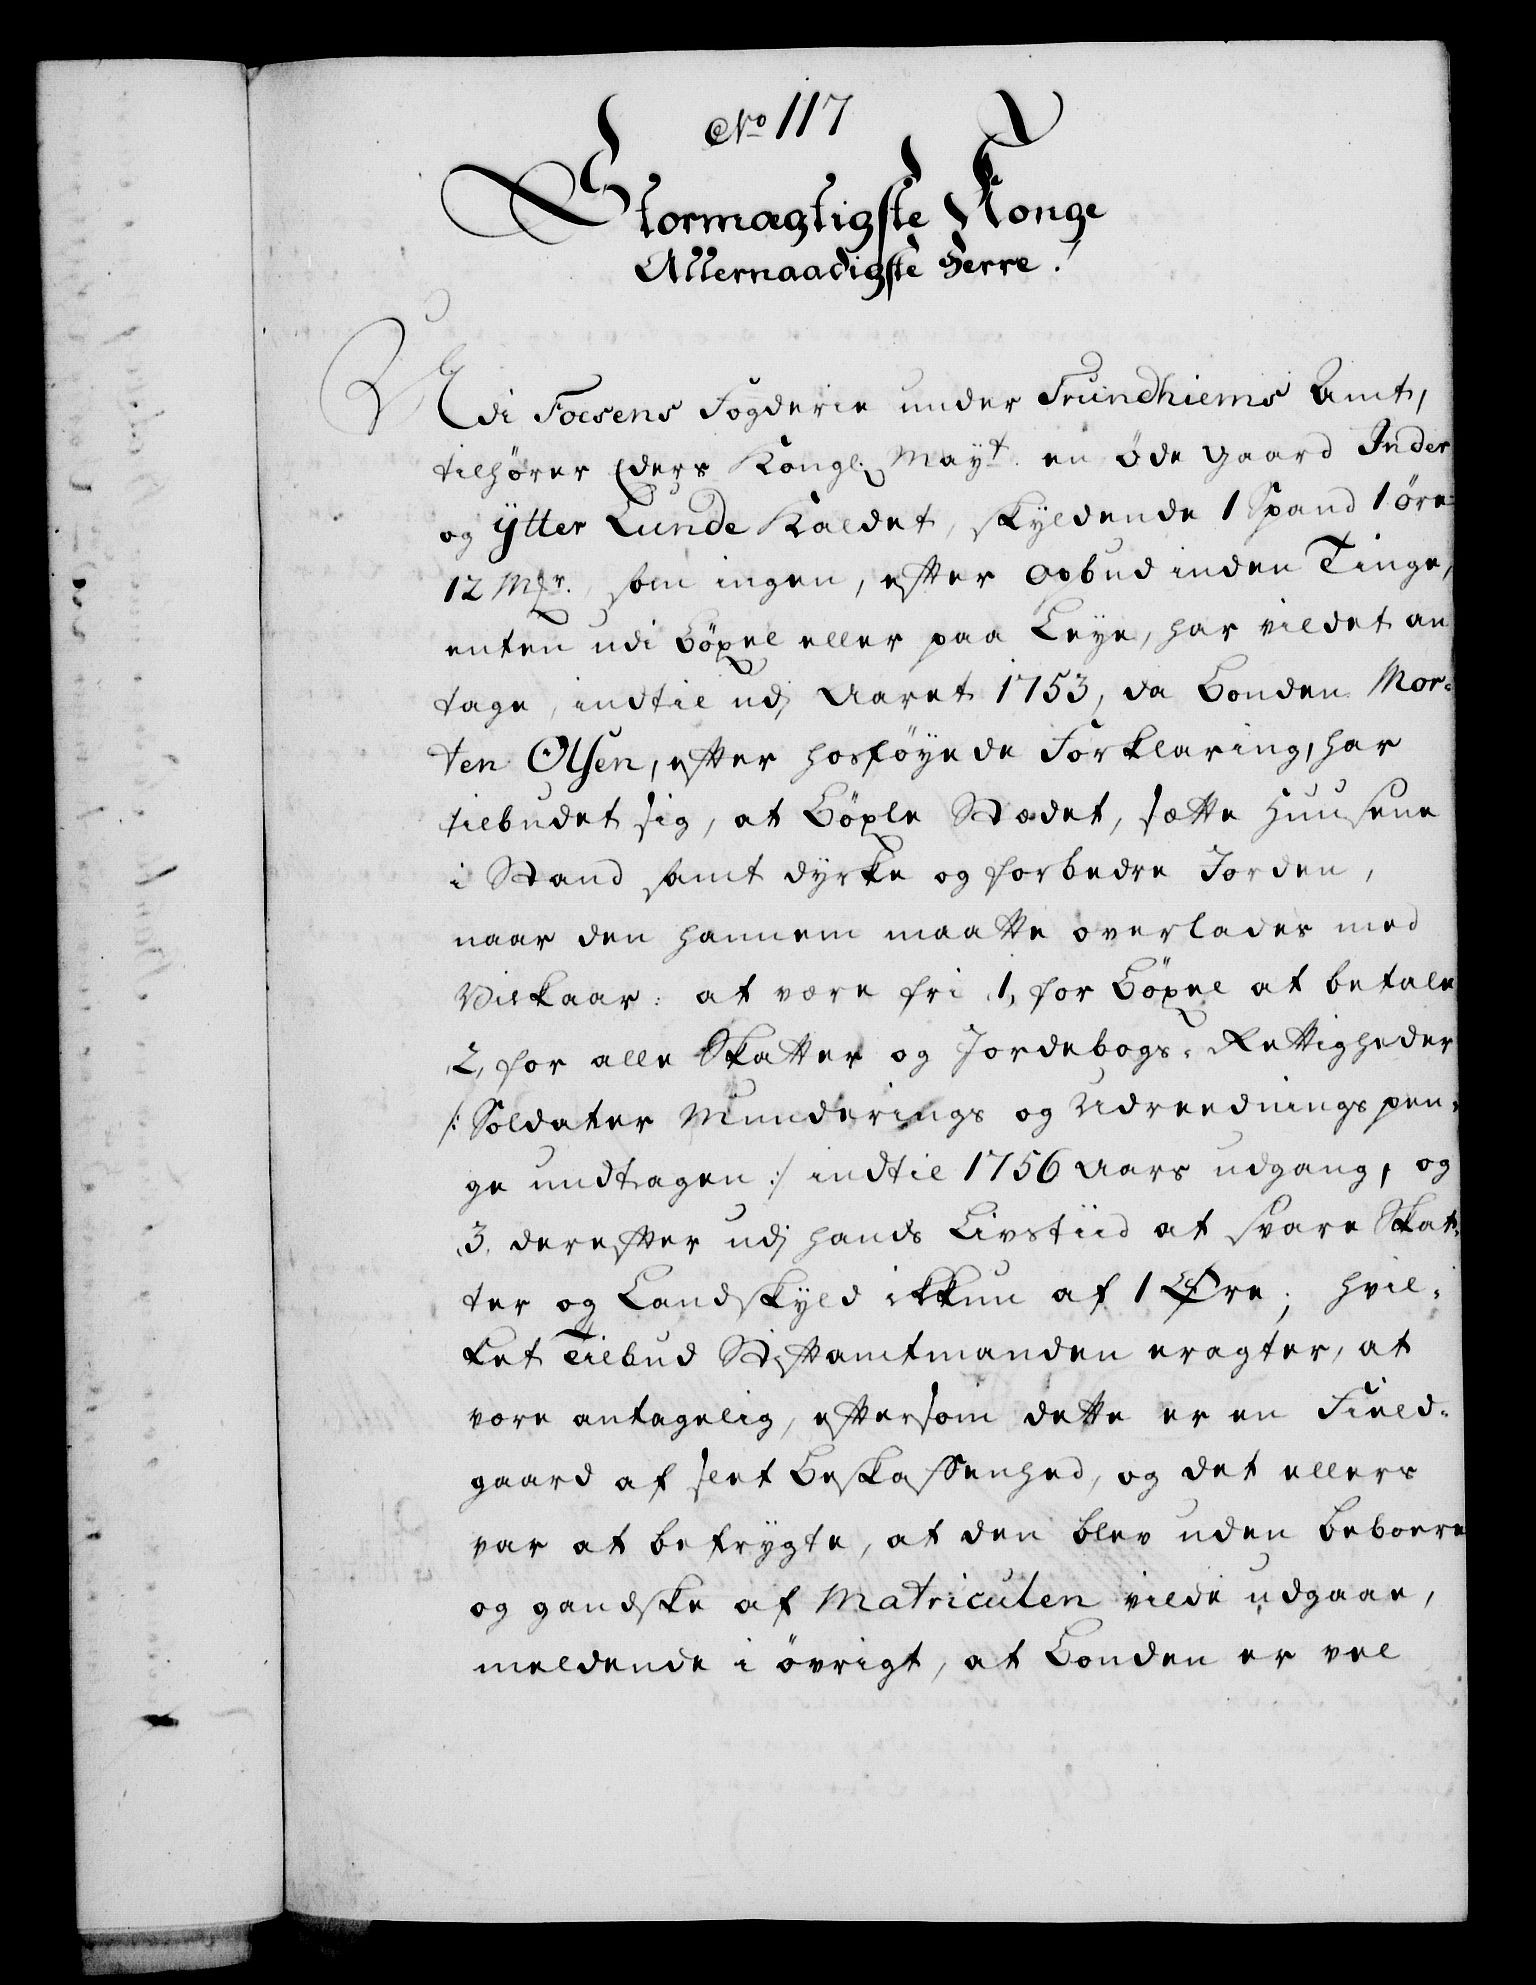 No 117
Stormægtigste Konge
Allernaadigste Herre!
Udi Foesens Fogderie under Trundhiems Amt,
tilhører Eders Kongl. Mayt. en öde Gaard Inder
og Ytter Lunde kaldet, skyldende 1 Spand 1 öre
12 Mkr. som ingen, efter Opbud inden Tinge,
enten udi Böxel eller paa Leye, har vildet an
tage, indtil udj Aaret 1753, da Bonden Mor-
ten Olsen, efter hosföyede Forklaring, har
tilbudet sig, at Böxle Stædet, sætte Huusene
i Stand samt dyrke og forbedre Jorden,
naar den hannem maatte overlades med
Vilkaar: at være fri 1, for Böxel at betale
2, for alle Skatter og Jordebogs-Rettigheder
/: Soldater Munderings og Udreednings pen-
ge undtagen :/ indtil 1756 Aars udgang, og
3, derefter udj hands Livstiid at svare Skat-
ter og Landskyld ikkun af 1 Øre; hvil-
ket Tilbud Stiftamtmanden eragter, at
være antagelig, eftersom dette er en Field-
gaard af slet Beskaffenhed, og det ellers
var at befrygte, at den blev uden Beboere
og gandske af Matriculen vilde udgaae,
meldende i övrigt, at Bonden er vel